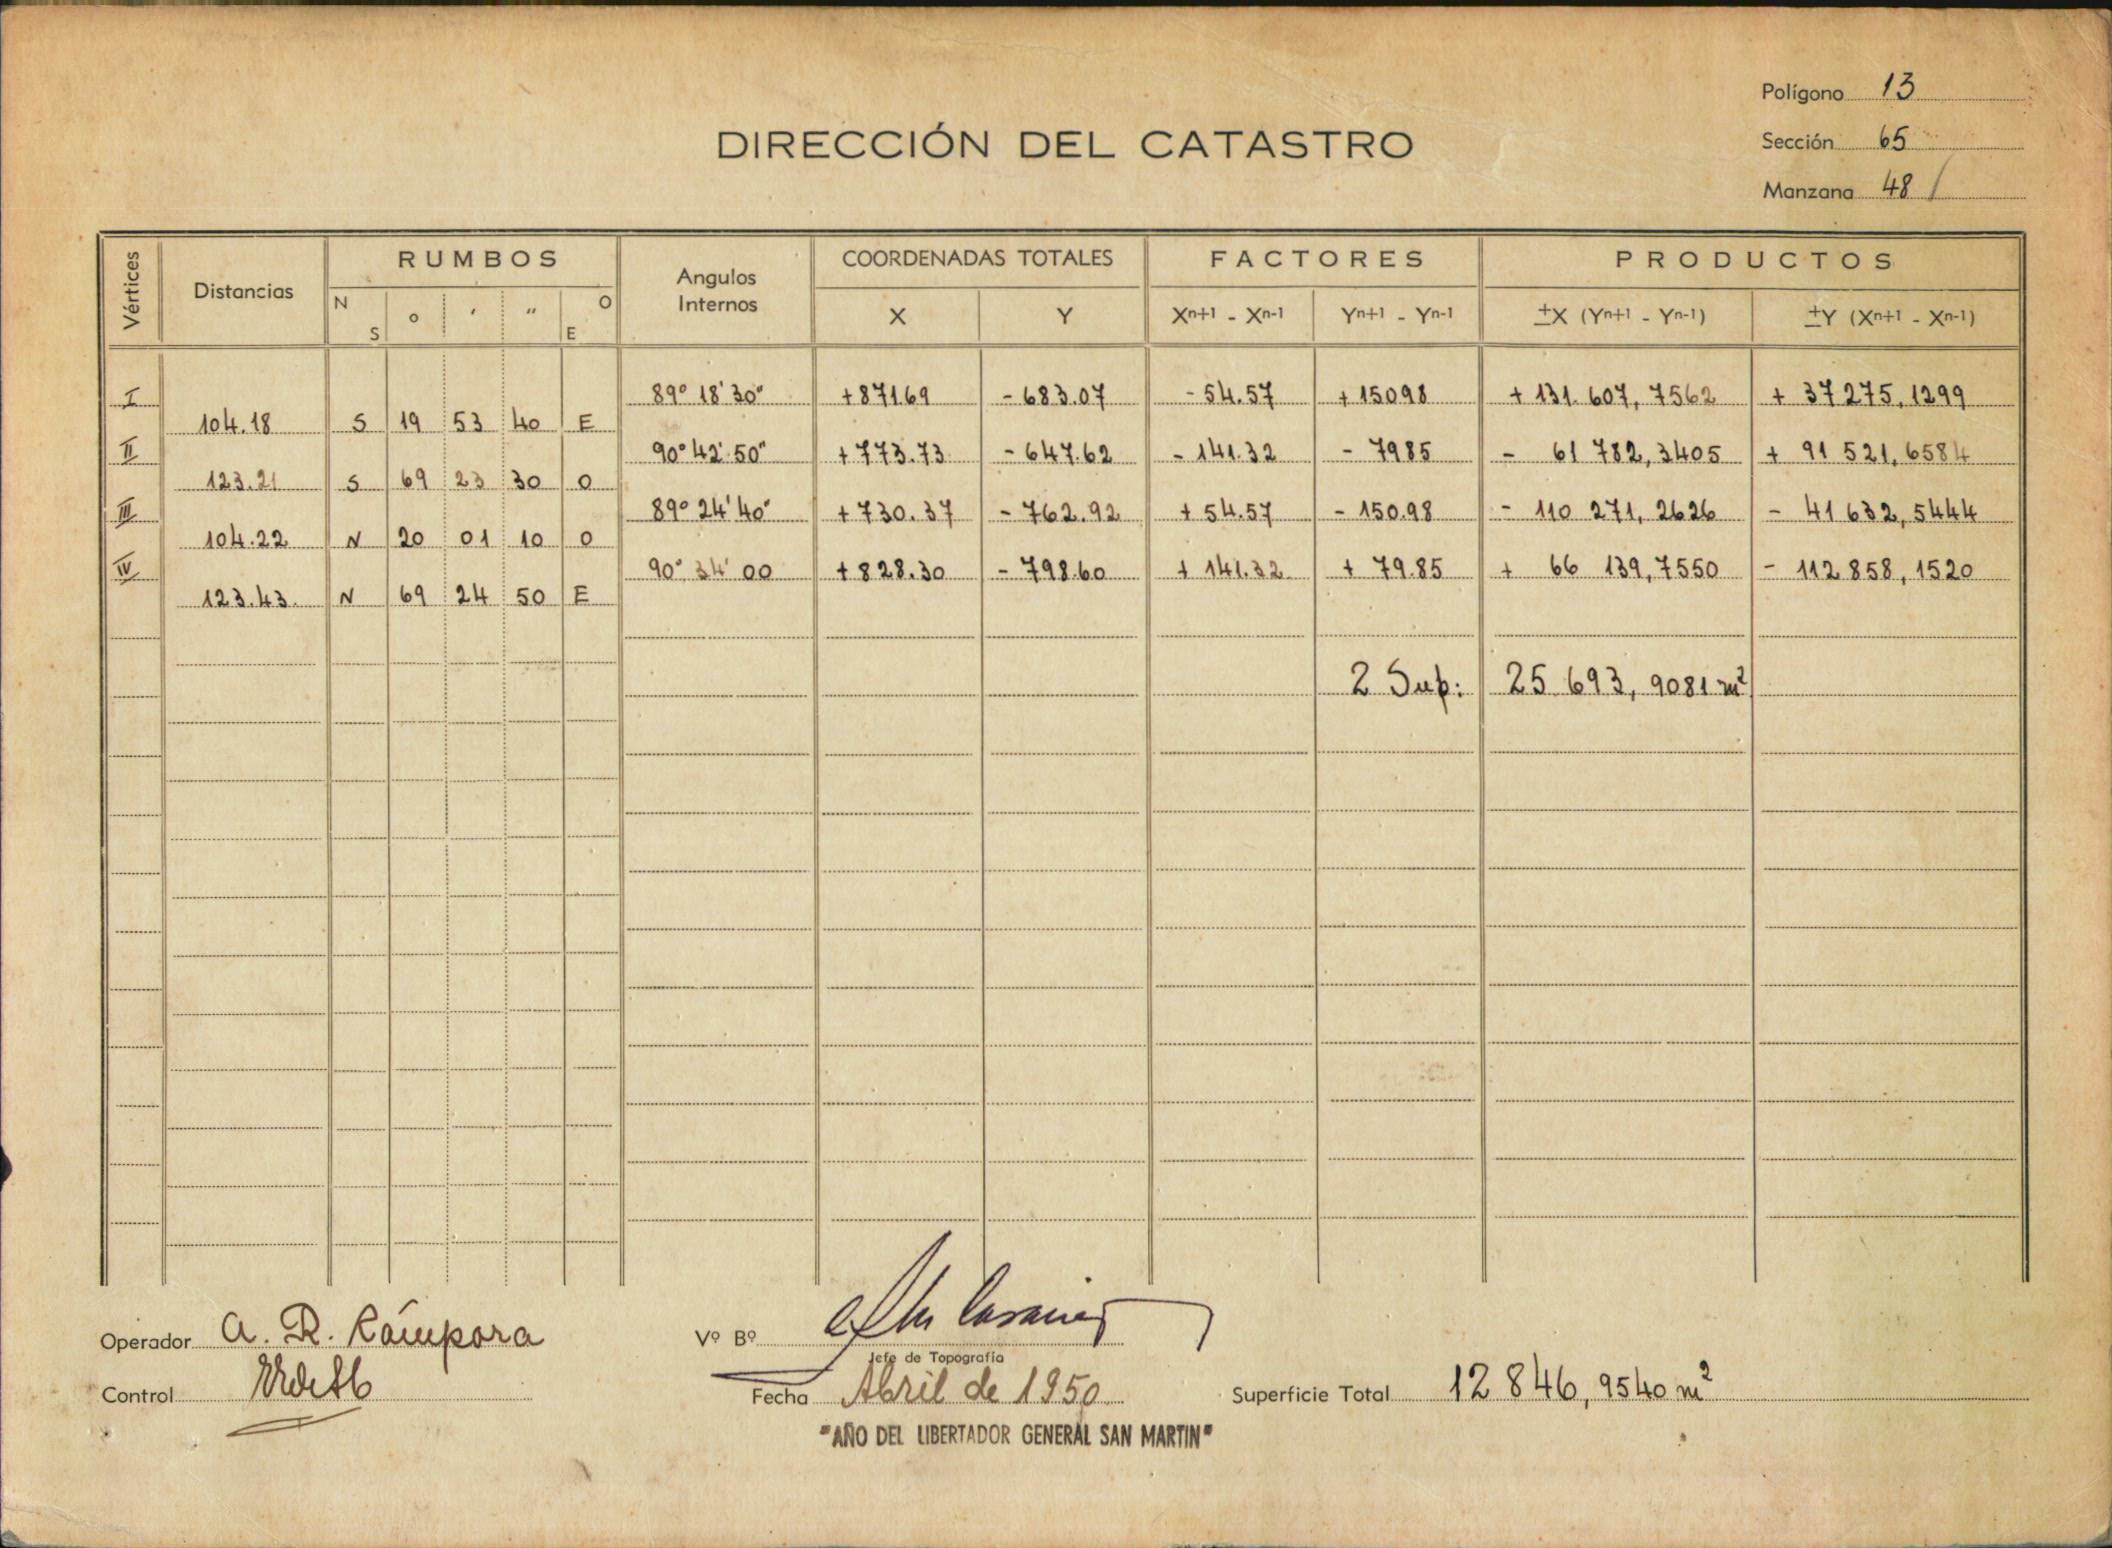 Polígono 13
DIRECCIÓN DEL CATASTRO
Sección 65
Manzana 48 /
Vértices Distancias RUMBOS Angulos Internos COORDENADAS TOTALES FACTORES PRODUCTOS
N S o ′ ″ O E X Y Xn+1 - Xn-1 Yn+1 - Yn-1 ±X (Yn+1 - Yn-1) ±Y (Xn+1 - Xn-1)
I 89° 18' 30" +871.69 - 683.07 - 54.57 + 150.98 + 131.607, 7562 + 37 275, 1299
104.18 S 19 53 40 E
II 90° 42' 50" +773.73 - 647.62 - 141.32 - 79.85 - 61 782, 3405 + 91 521, 6584
123.21 S 69 23 30 O
III 89° 24' 40" +730.37 - 762.92 + 54.57 - 150.98 - 110 271, 2626 - 41 632, 5444
104.22 N 20 01 10 O
IV 90° 34' 00 +828.30 - 798.60 + 141.32 + 79.85 + 66 139, 7550 - 112 858, 1520
123.43 N 69 24 50 E
2 Sup: 25 693, 9081 m²
Operador A. R. Cámpora Vº Bº
Jefe de Topografía
Control Fecha Abril de 1950 Superficie Total 12 846, 9540 m²
"AÑO DEL LIBERTADOR GENERAL SAN MARTIN"